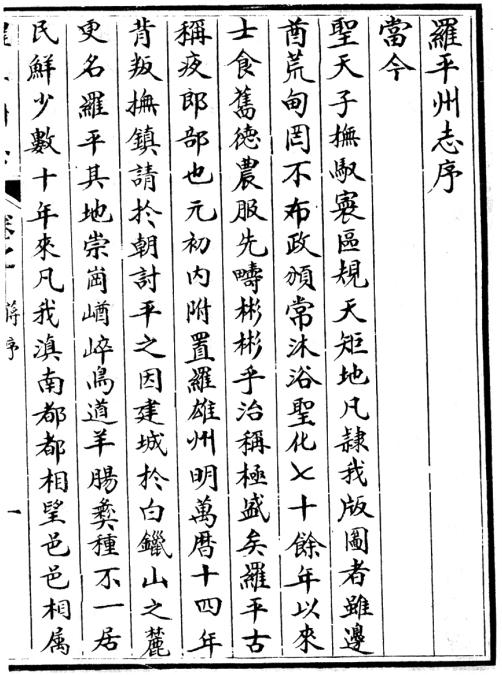 羅平州志序
當今
聖天子撫馭寰區規天矩地凡隸我版圖者雖邊
酋荒甸罔不布政頒常沐浴聖化七十餘年以來
士食舊德農服先疇彬彬乎治稱極盛矣羅平古
稱夜郎部也元初內附置羅雄州明萬暦十四年
背叛撫鎮請於朝討平之因建城於白鑞山之麓
更名羅平其地崇崗崷崪鳥道羊腸彝種不一居
民鮮少數十年來凡我滇南都都相望邑邑相属
蔣序
一